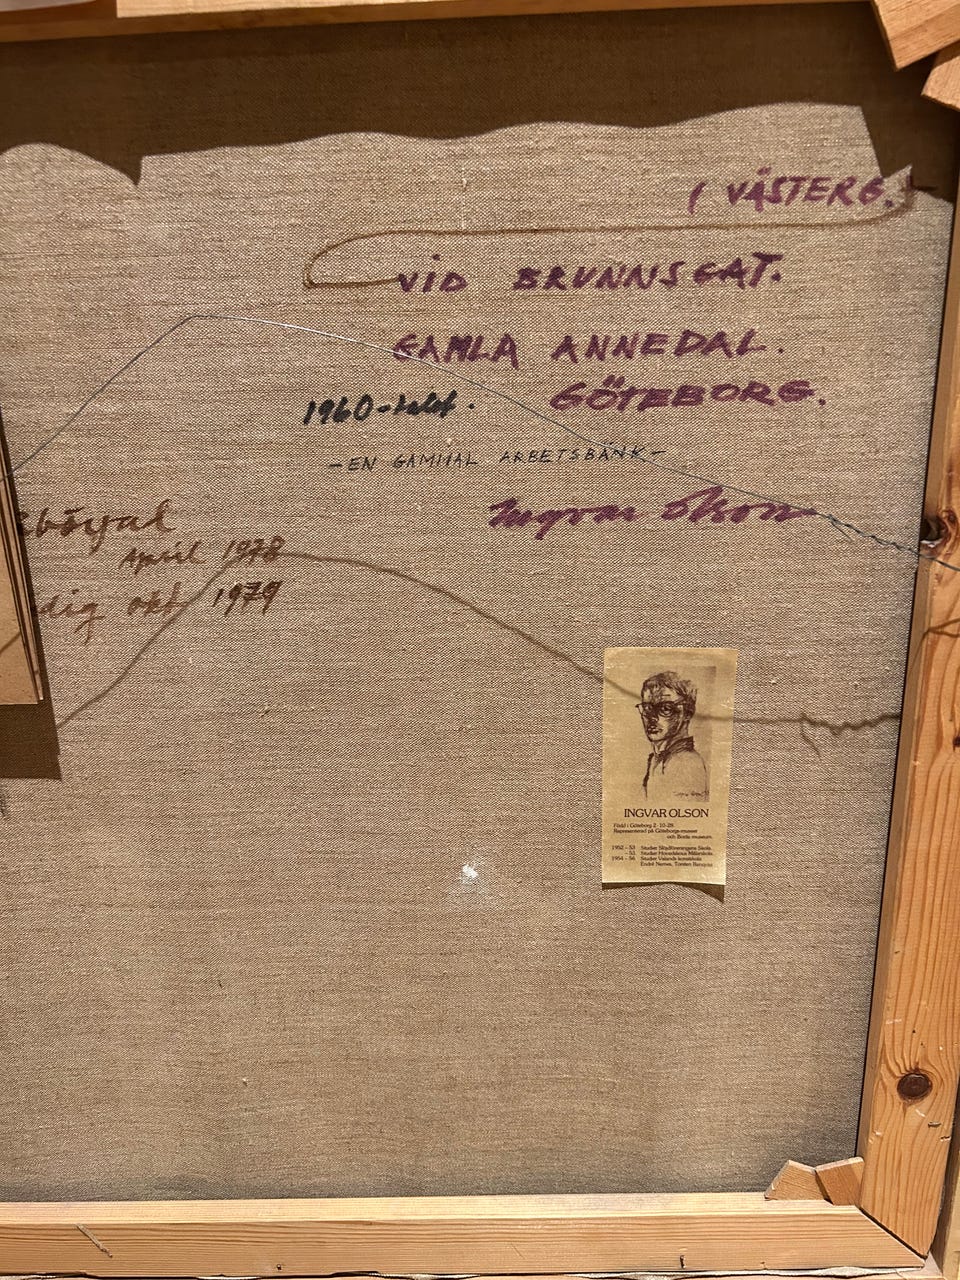 ( VÄSTERG.)
VID BRUNNSGAT.
GAMLA ANNEDAL.
GÖTEBORG.
1960-talet.
- EN GAMMAL ARBETSBÄNK -
Ingvar Olson
April 1978
okt 1979
INGVAR OLSON
Född i Göteborg 2.10-28.
Representerad på Göteborgs museer
och Borås museum.
1952 – 53 Studier Slöjdföreningens Skola.
– 53 Studier Hovedskous Målarskola.
1954 – 56 Studier Valands konstskola
Endre Nemes, Torsten Renqvist